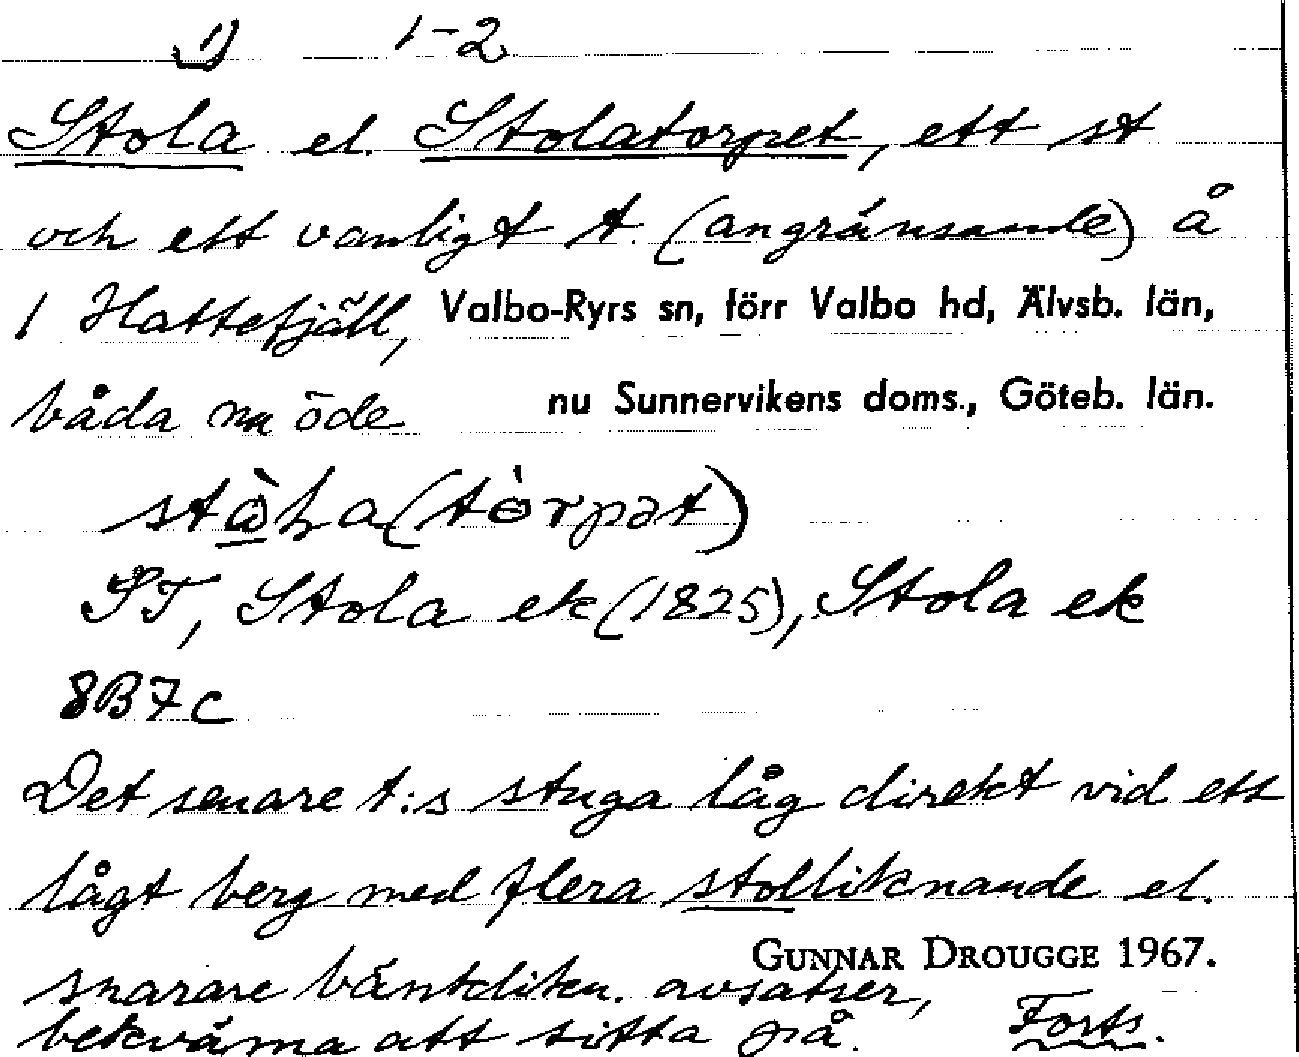 1) 1-2
Stola el. Stolatorpet, ett st
och ett vanligt t. (angränsande) å
1 Hattefjäll, Valbo-Ryrs sn, förr Valbo hd, Älvsb. län,
båda nu öde nu Sunnervikens doms., Göteb. län.
(tòrpət)
ST, Stola ek (1825), Stola ek
8B7c
Det senare t:s stuga låg direkt vid ett
lågt berg med flera stolliknande el.
GUNNAR DROUGGE 1967.
snarare bänklikn. avsatser,
bekväma att sitta på. Forts.